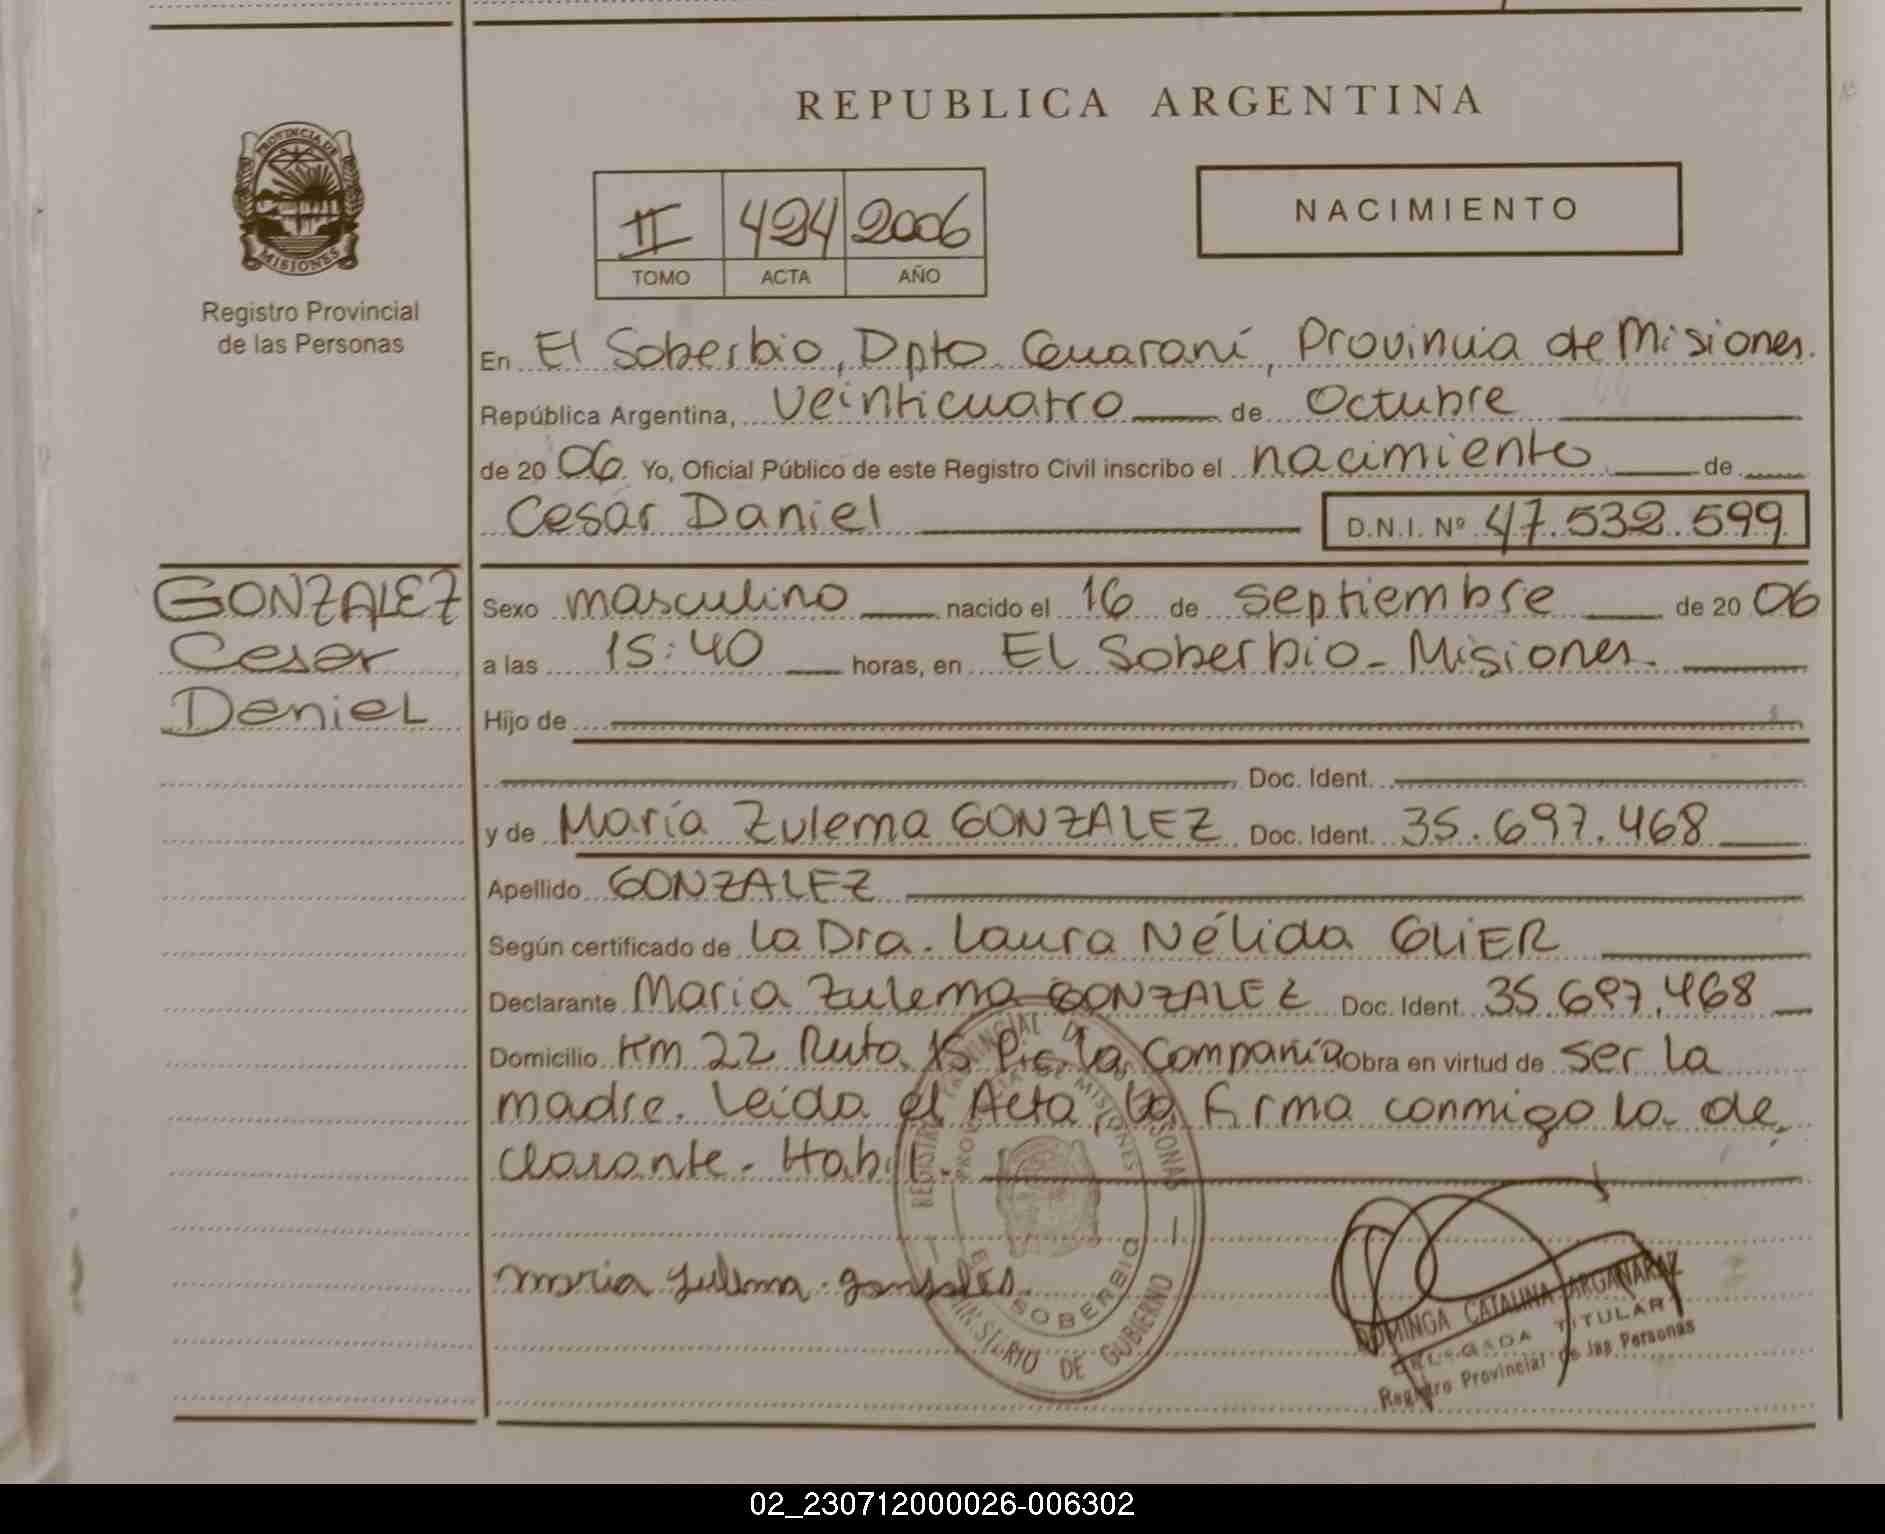 REPUBLICA ARGENTINA
PROVINCIA DE MISIONES
Registro Provincial
de las Personas
II 424 2006
TOMO ACTA AÑO
NACIMIENTO
En El Soberbio, Dpto. Guaraní, Provincia de Misiones.
República Argentina, veinticuatro de Octubre
de 2006. Yo, Oficial Público de este Registro Civil inscribo el nacimiento de
Cesar Daniel D.N.I. Nº 47.532.599
GONZALEZ
Cesar
Daniel
Sexo masculino nacido el 16 de septiembre de 2006
a las 15:40 horas, en El Soberbio - Misiones.
Hijo de
Doc. Ident.
y de María Zulema GONZALEZ Doc. Ident. 35.697.468
Apellido GONZALEZ
Según certificado de la Dra. Laura Nélida GLIER
Declarante Maria Zulema GONZALEZ Doc. Ident. 35.697.468
Domicilio Km 22 Ruta 15 la Compañia Obra en virtud de ser la
madre. Leída el Acta, la firma conmigo la de
clarante. Habil.
maria zulema gonsales.
REGISTRO PROVINCIAL DE LAS PERSONAS
PROVINCIA DE MISIONES
EL SOBERBIO
MINISTERIO DE GOBIERNO
DOMINGA CATALINA ARGAÑARAZ
DELEGADA TITULAR
Registro Provincial de las Personas
02_230712000026-006302